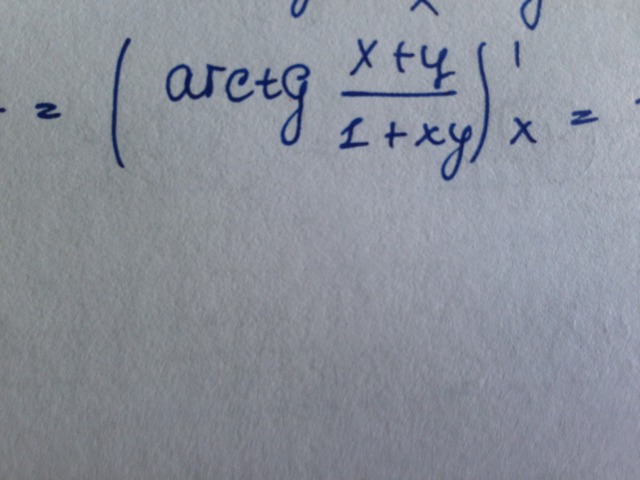 = ( arctg \frac{x+y}{1+xy} )'_x =